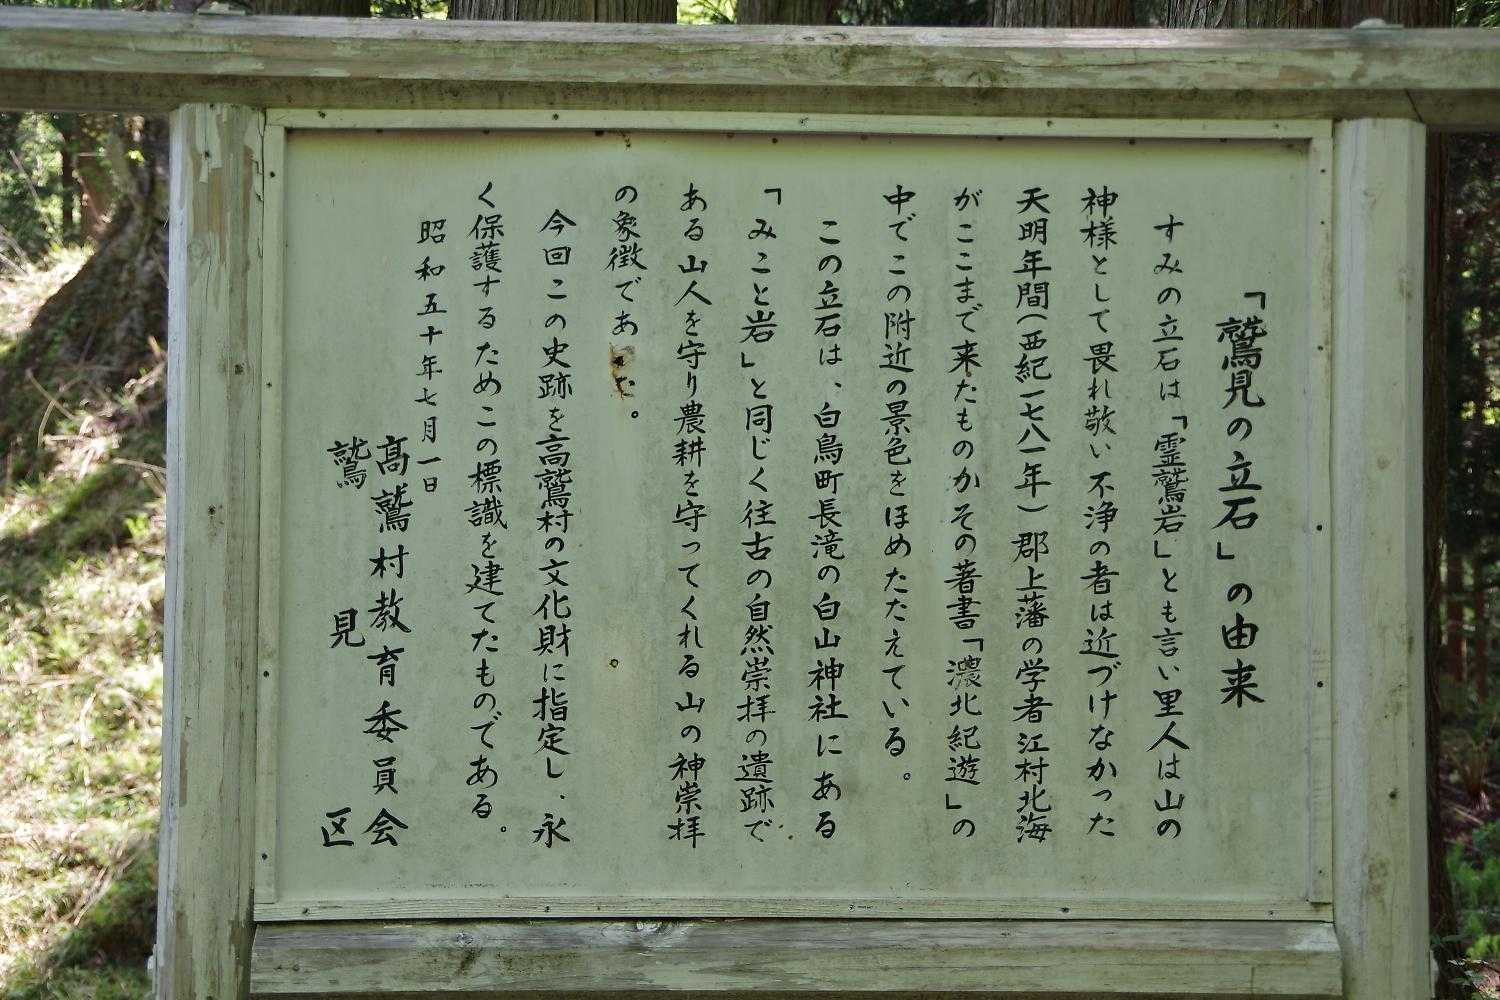 「鷲見の立石」の由来
すみの立石は「霊鷲岩」とも言い里人は山の
神様として畏れ敬い不浄の者は近づけなかった
天明年間(西紀一七八一年)郡上藩の学者江村北海
がここまで来たものかその著書「濃北紀遊」の
中でこの附近の景色をほめたたえている。
この立石は、白鳥町長滝の白山神社にある
「みこと岩」と同じく往古の自然崇拝の遺跡で
ある山人を守り農耕を守ってくれる山の神崇拝
の象徴であった。
今回この史跡を高鷲村の文化財に指定し、永
く保護するためこの標識を建てたものである。
昭和五十年七月一日
髙鷲村教育委員会
鷲見区